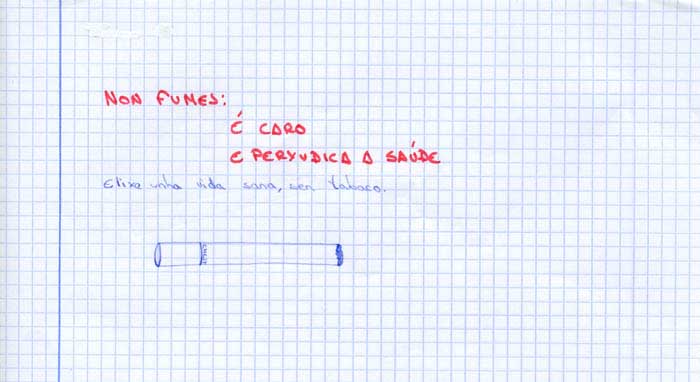 NON FUMES:
É CARO
E PERXUDICA A SAÚDE
Elixe unha vida sana, sen tabaco.